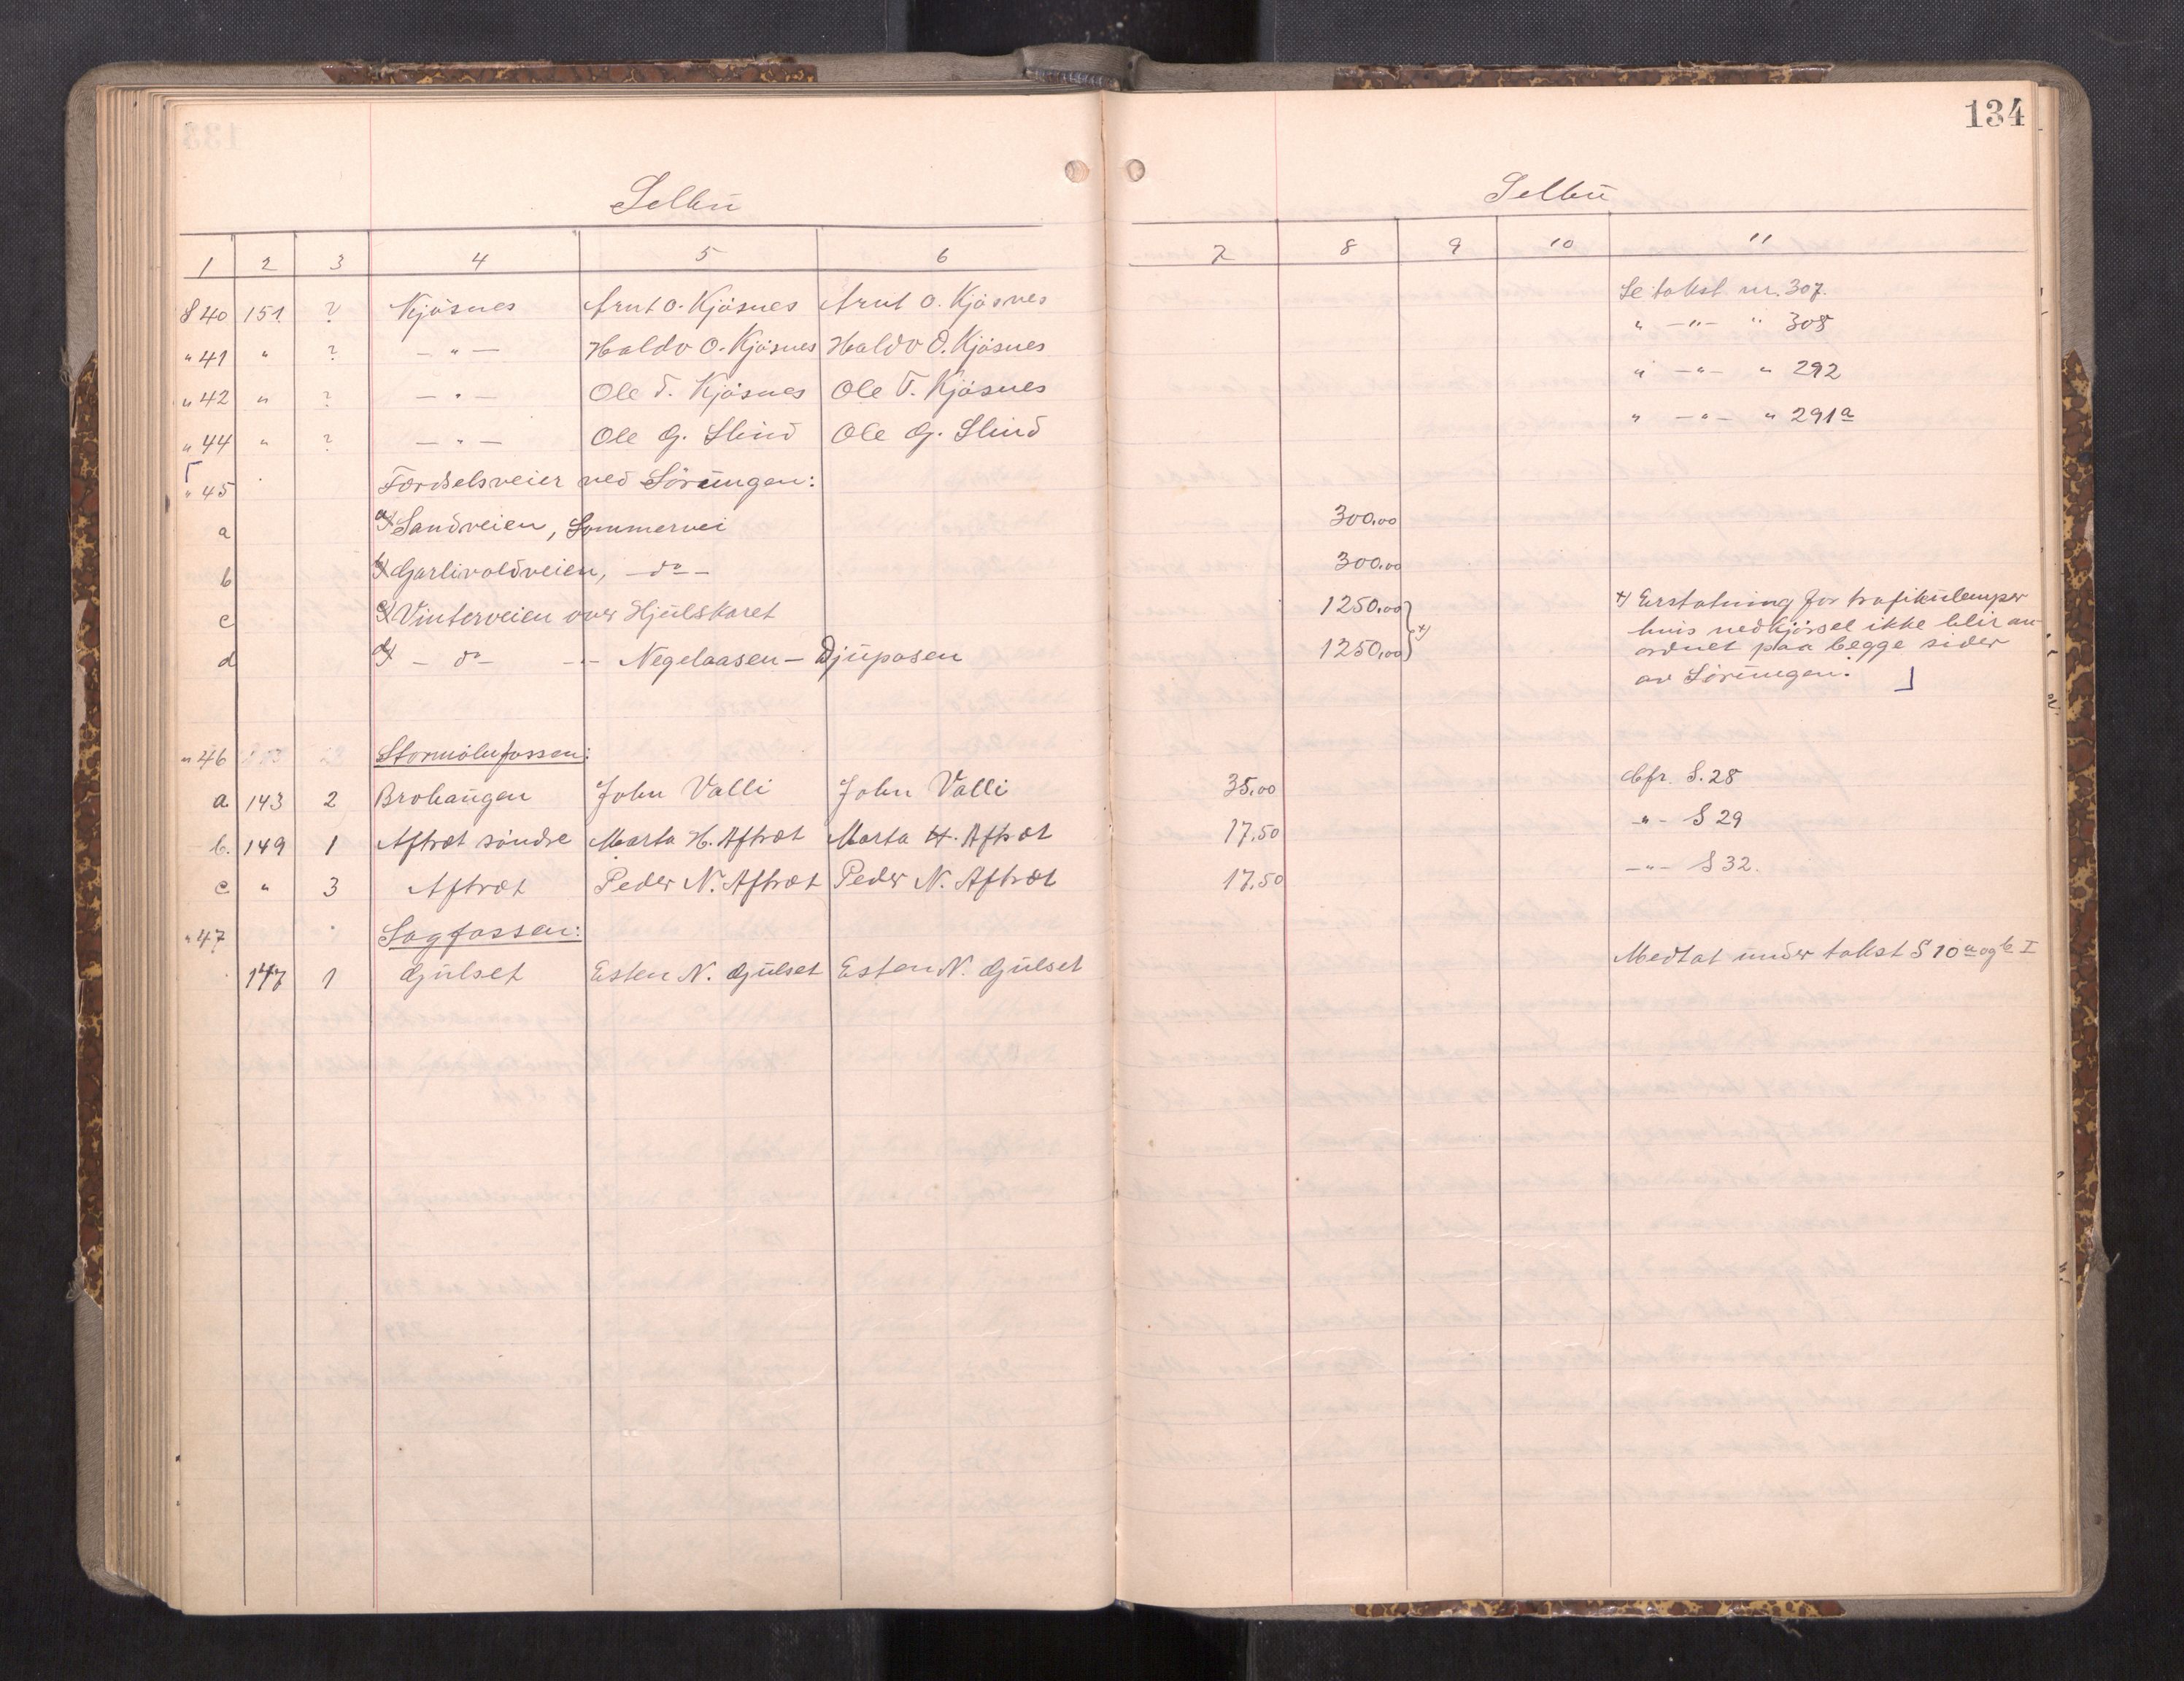 134
Selbu
Selbu
1 2 3 4 5 6 7 8 9 10 11
S 40 151 ? Kjösnes Arnt O. Kjösnes Arnt O. Kjösnes Se takst nr. 307.
" 41 " ? — " — Haldo O. Kjösnes Haldo O. Kjösnes " —"— " 308
" 42 " ? — " — Ole T. Kjösnes Ole T. Kjösnes " —"— " 292
" 44 " ? — " — Ole G. Slind Ole G. Slind " —"— " 291a
" 45 Færdselsveier ved Sörungen:
a a) Sandveien, Sommervei 300.00
b b) Garlivoldveien, —do— 300.00
c c) Vinterveien over Hjulskaret 1250.00
d d) — do — — " — Negelaasen — Djupasen 1250,00 x)
x) Erstatning for trafikulemper
hvis nedkjörsel ikke blir an-
ordnet paa begge sider
av Sörungen.
" 46 Stormölnfossen:
a 143 2 Brohaugen John Valli John Valli 35,00 Cfr. S. 28
b. 149 1 Aftret söndre Marta H. Aftret Marta H. Aftret 17,50 —"— S 29
c " 3 Aftret Peder N. Aftret Peder N. Aftret 17,50 —"— S 32.
" 47 Sagfossen:
147 1 Gulset Esten N. Gulset Esten N. Gulset Medtat under takst S 10 a og b I